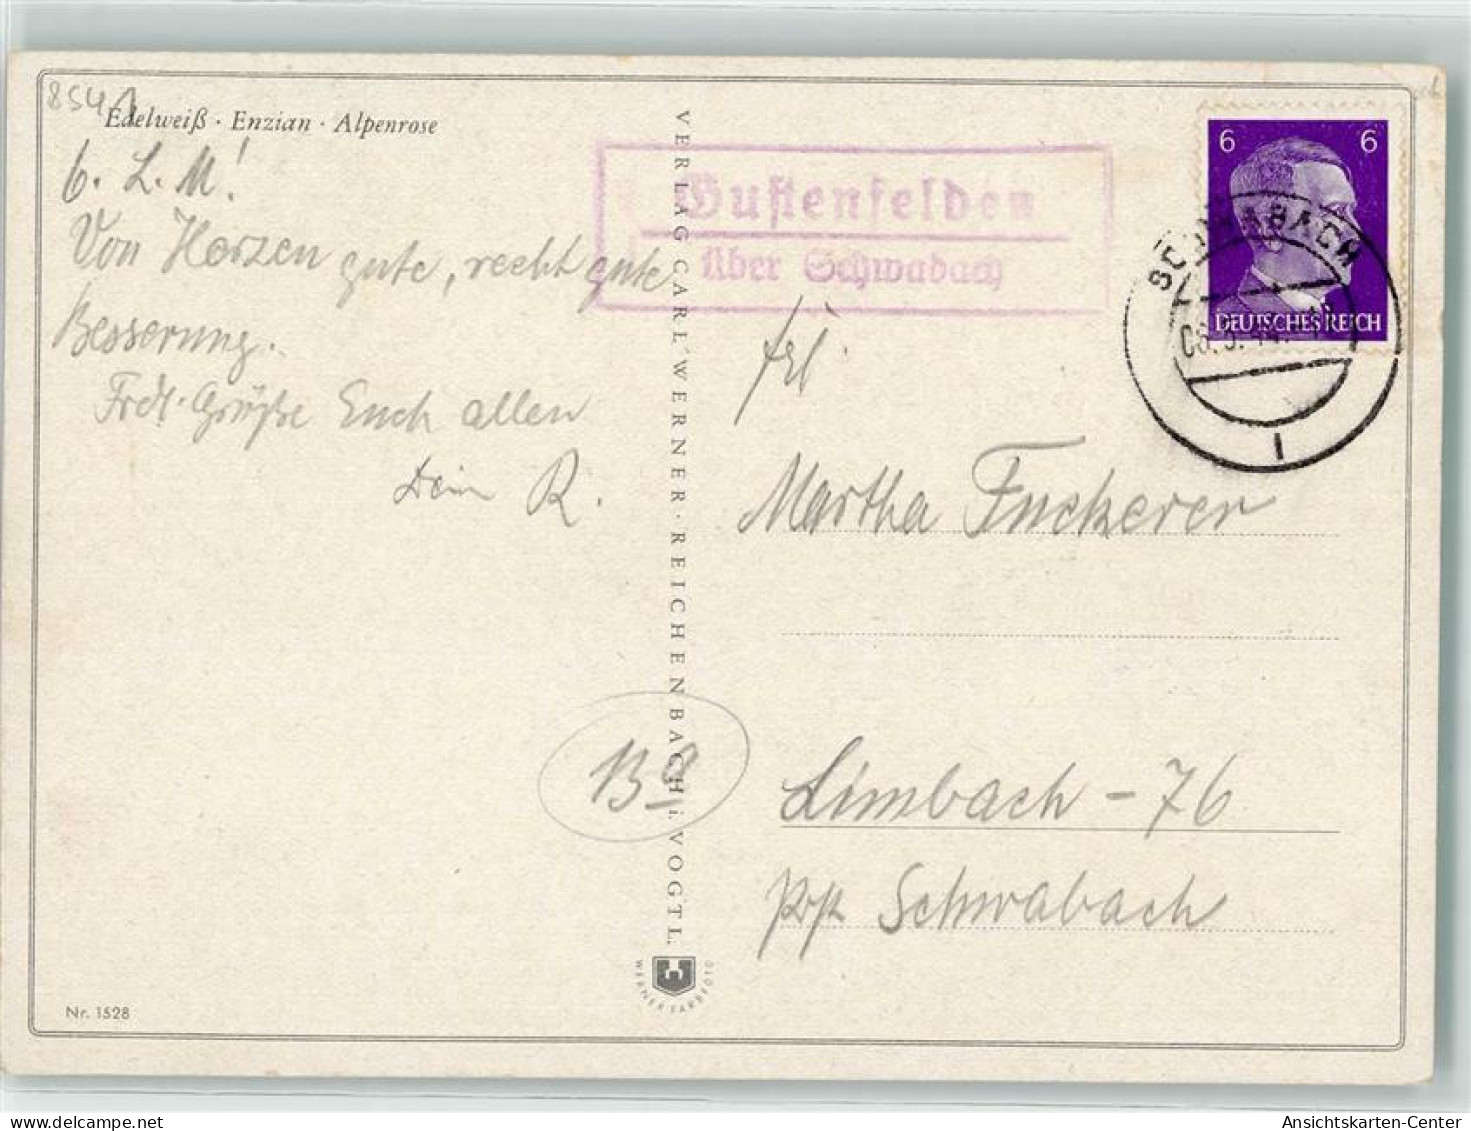 8541
Edelweiß · Enzian · Alpenrose
b. L. M!
Von Herzen gute, recht gute
Besserung.
Frdl. Grüße Euch allen
Dein R.
VERLAG CARL WERNER · REICHENBACH i. VOGTL.
WERNER FARBFOTO
Nr. 1528
Gustenfelden
über Schwabach
6 6
DEUTSCHES REICH
SCHWABACH
1
Frl.
Martha Fuckerer
Limbach - 76
Schwabach
Ansichtskarten-Center